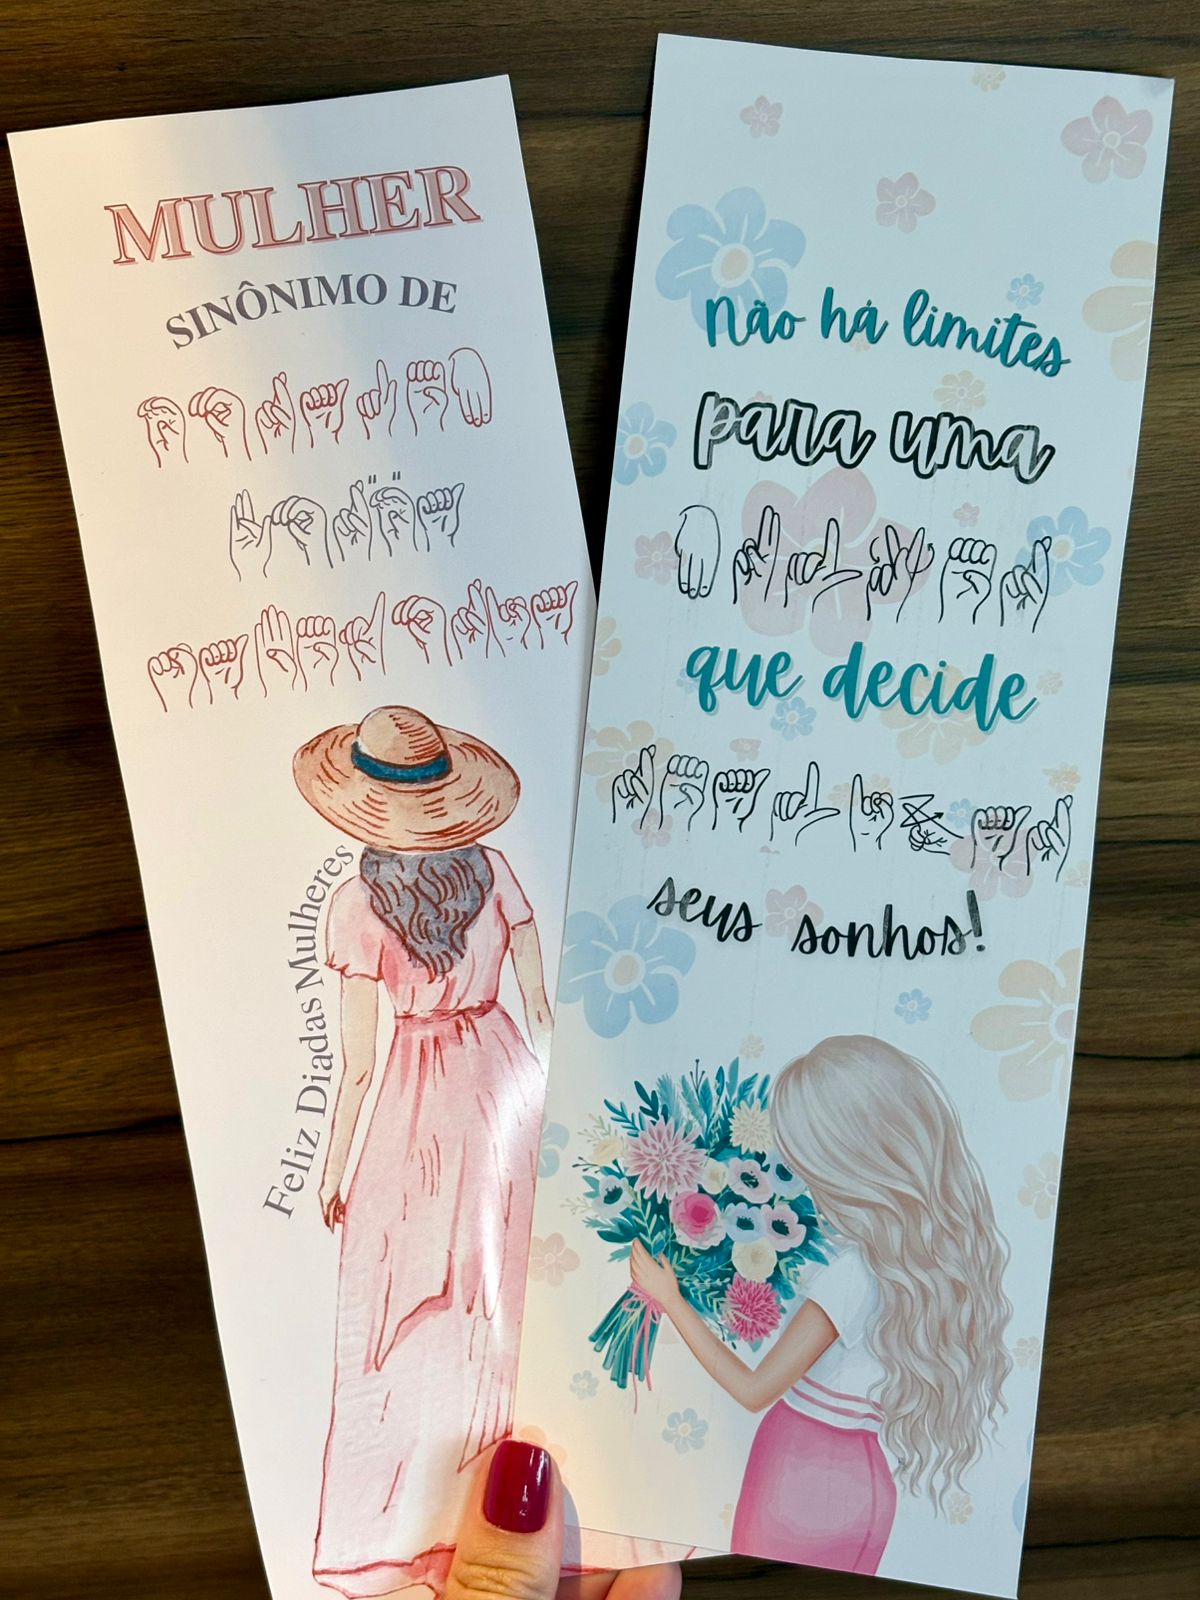 MULHER
SINÔNIMO DE
Feliz Diadas Mulheres
Não há limites
para uma
que decide
seus sonhos!